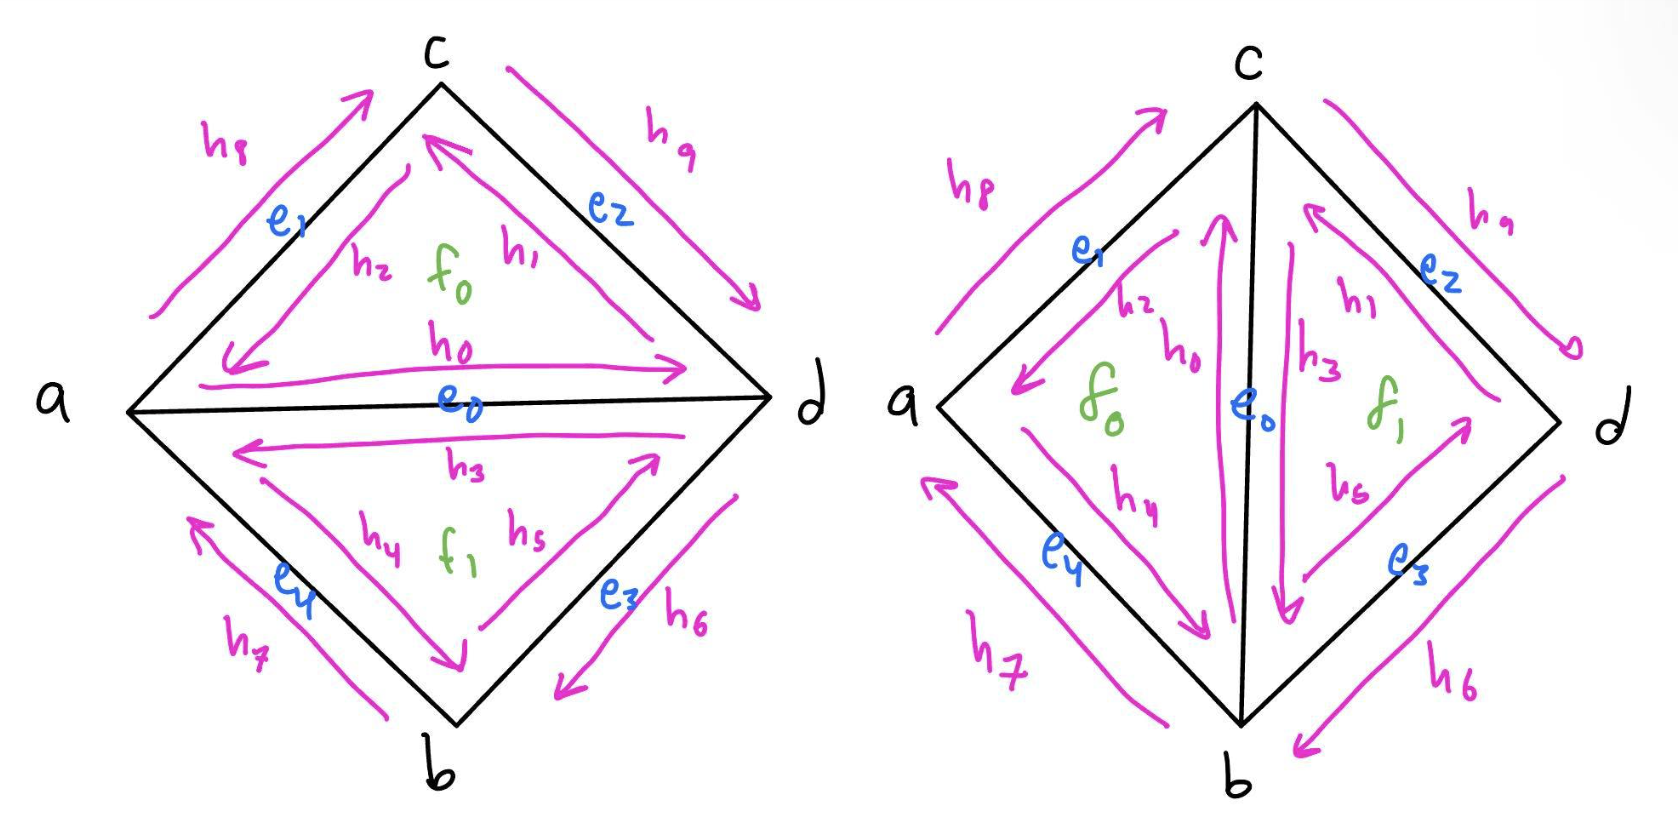 c
c
h8
h9
e1
e2
h2
f0
h1
h0
a
e0
d
h3
h4
f1
h5
e4
e3
h7
h6
b
h8
h9
e1
e2
h2
h0
h3
h1
a
f0
e0
f1
d
h4
h5
e4
e3
h7
h6
b